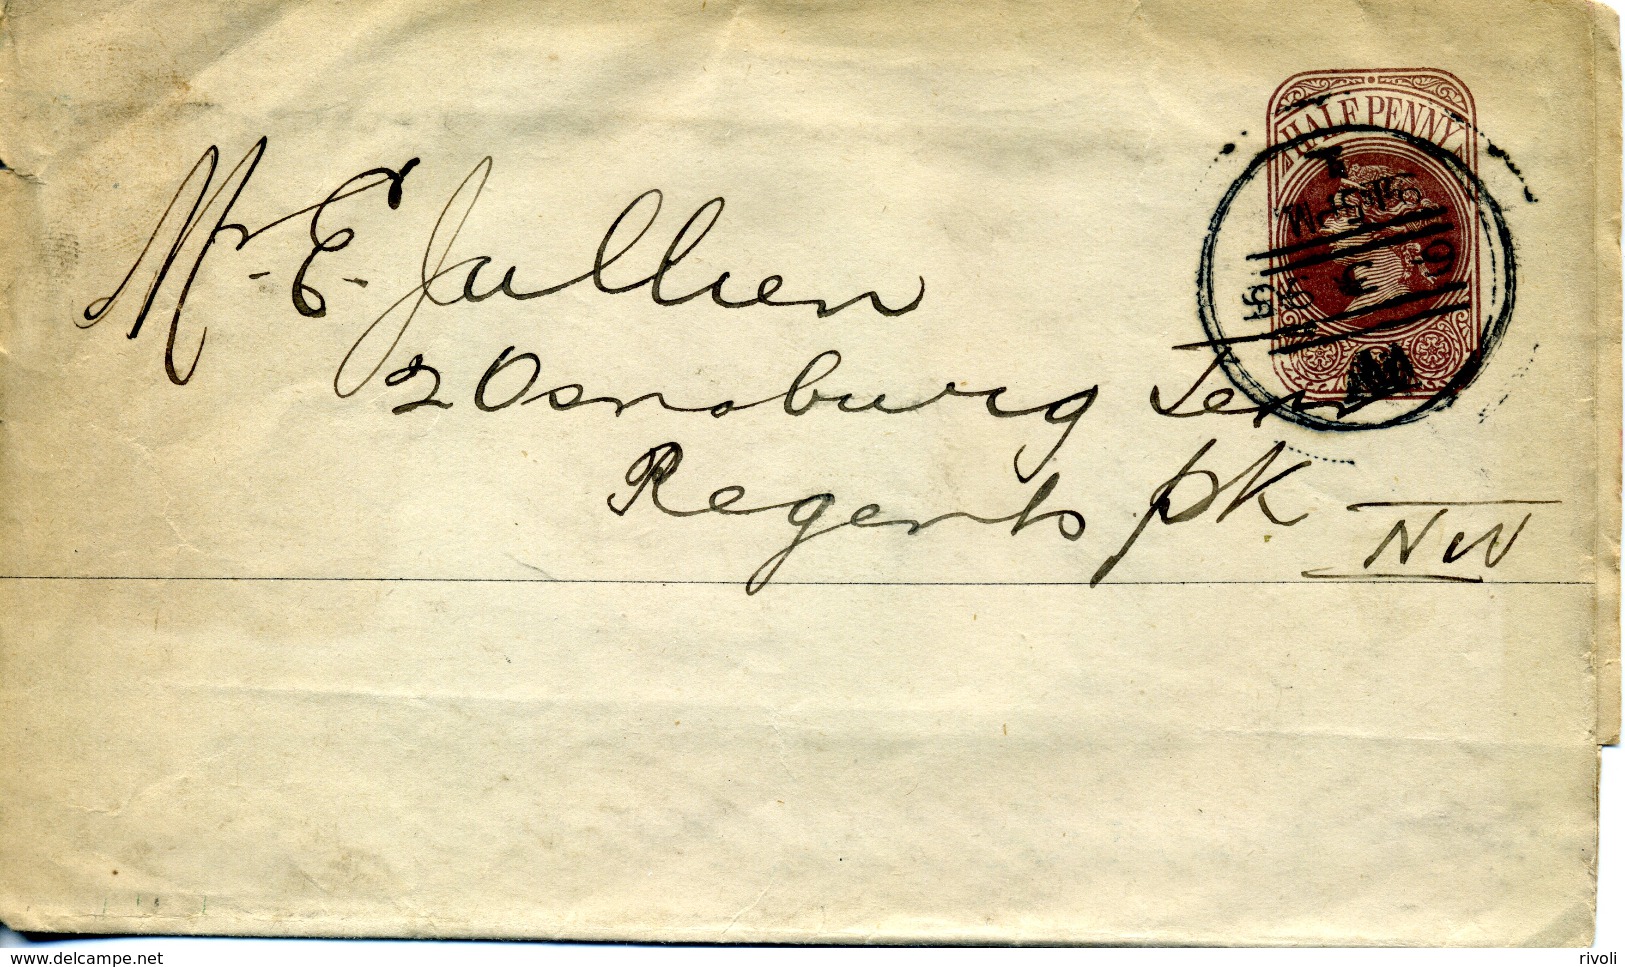 HALF PENNY
Mr. E. Jullien
2 Osnaburg Terr
Regents pk
NW
delcampe.net
rivoli